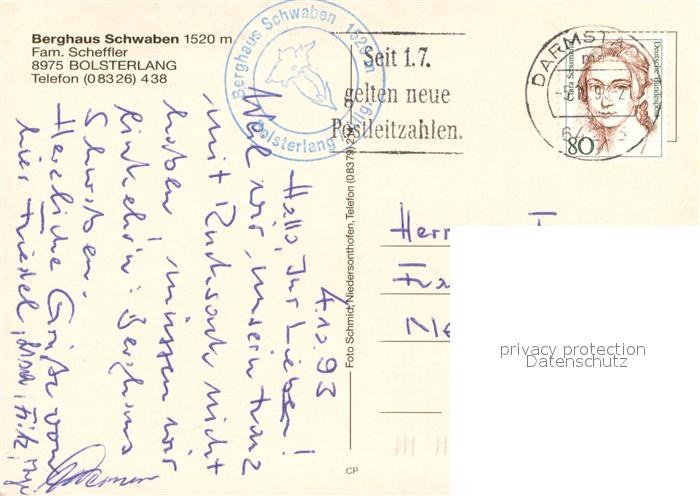 Berghaus Schwaben 1520 m
Fam. Scheffler
8975 BOLSTERLANG
Telefon (0 83 26) 438
Berghaus Schwaben 1520 m
Bolsterlang
Seit 1.7.
gelten neue
Postleitzahlen.
DARMSTA
Deutsche Bundespost
Clara Schumann
80
4.10.93
Hallo, Ihr Lieben!
Weil wir unseren Franz
mit Rucksack nicht
haben, müssen wir
einkehren: Berghaus
Schwaben.
Herzliche Grüße von
hier Friedel, Fritz,
Werner
Foto Schmid, Niedersonthofen, Telefon (08379)
Herr
CP
privacy protection
Datenschutz